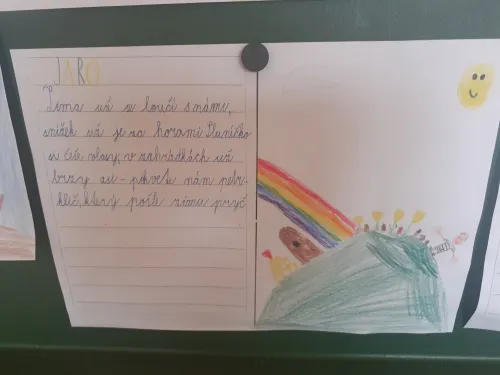 JARO
Zima už se loučí s námi,
snížek už je za horami Sluníčko
si češe vlasy, v zahrádkách už
brzy asi - pokvete nám petr-
klíč, který pošle zimu pryč